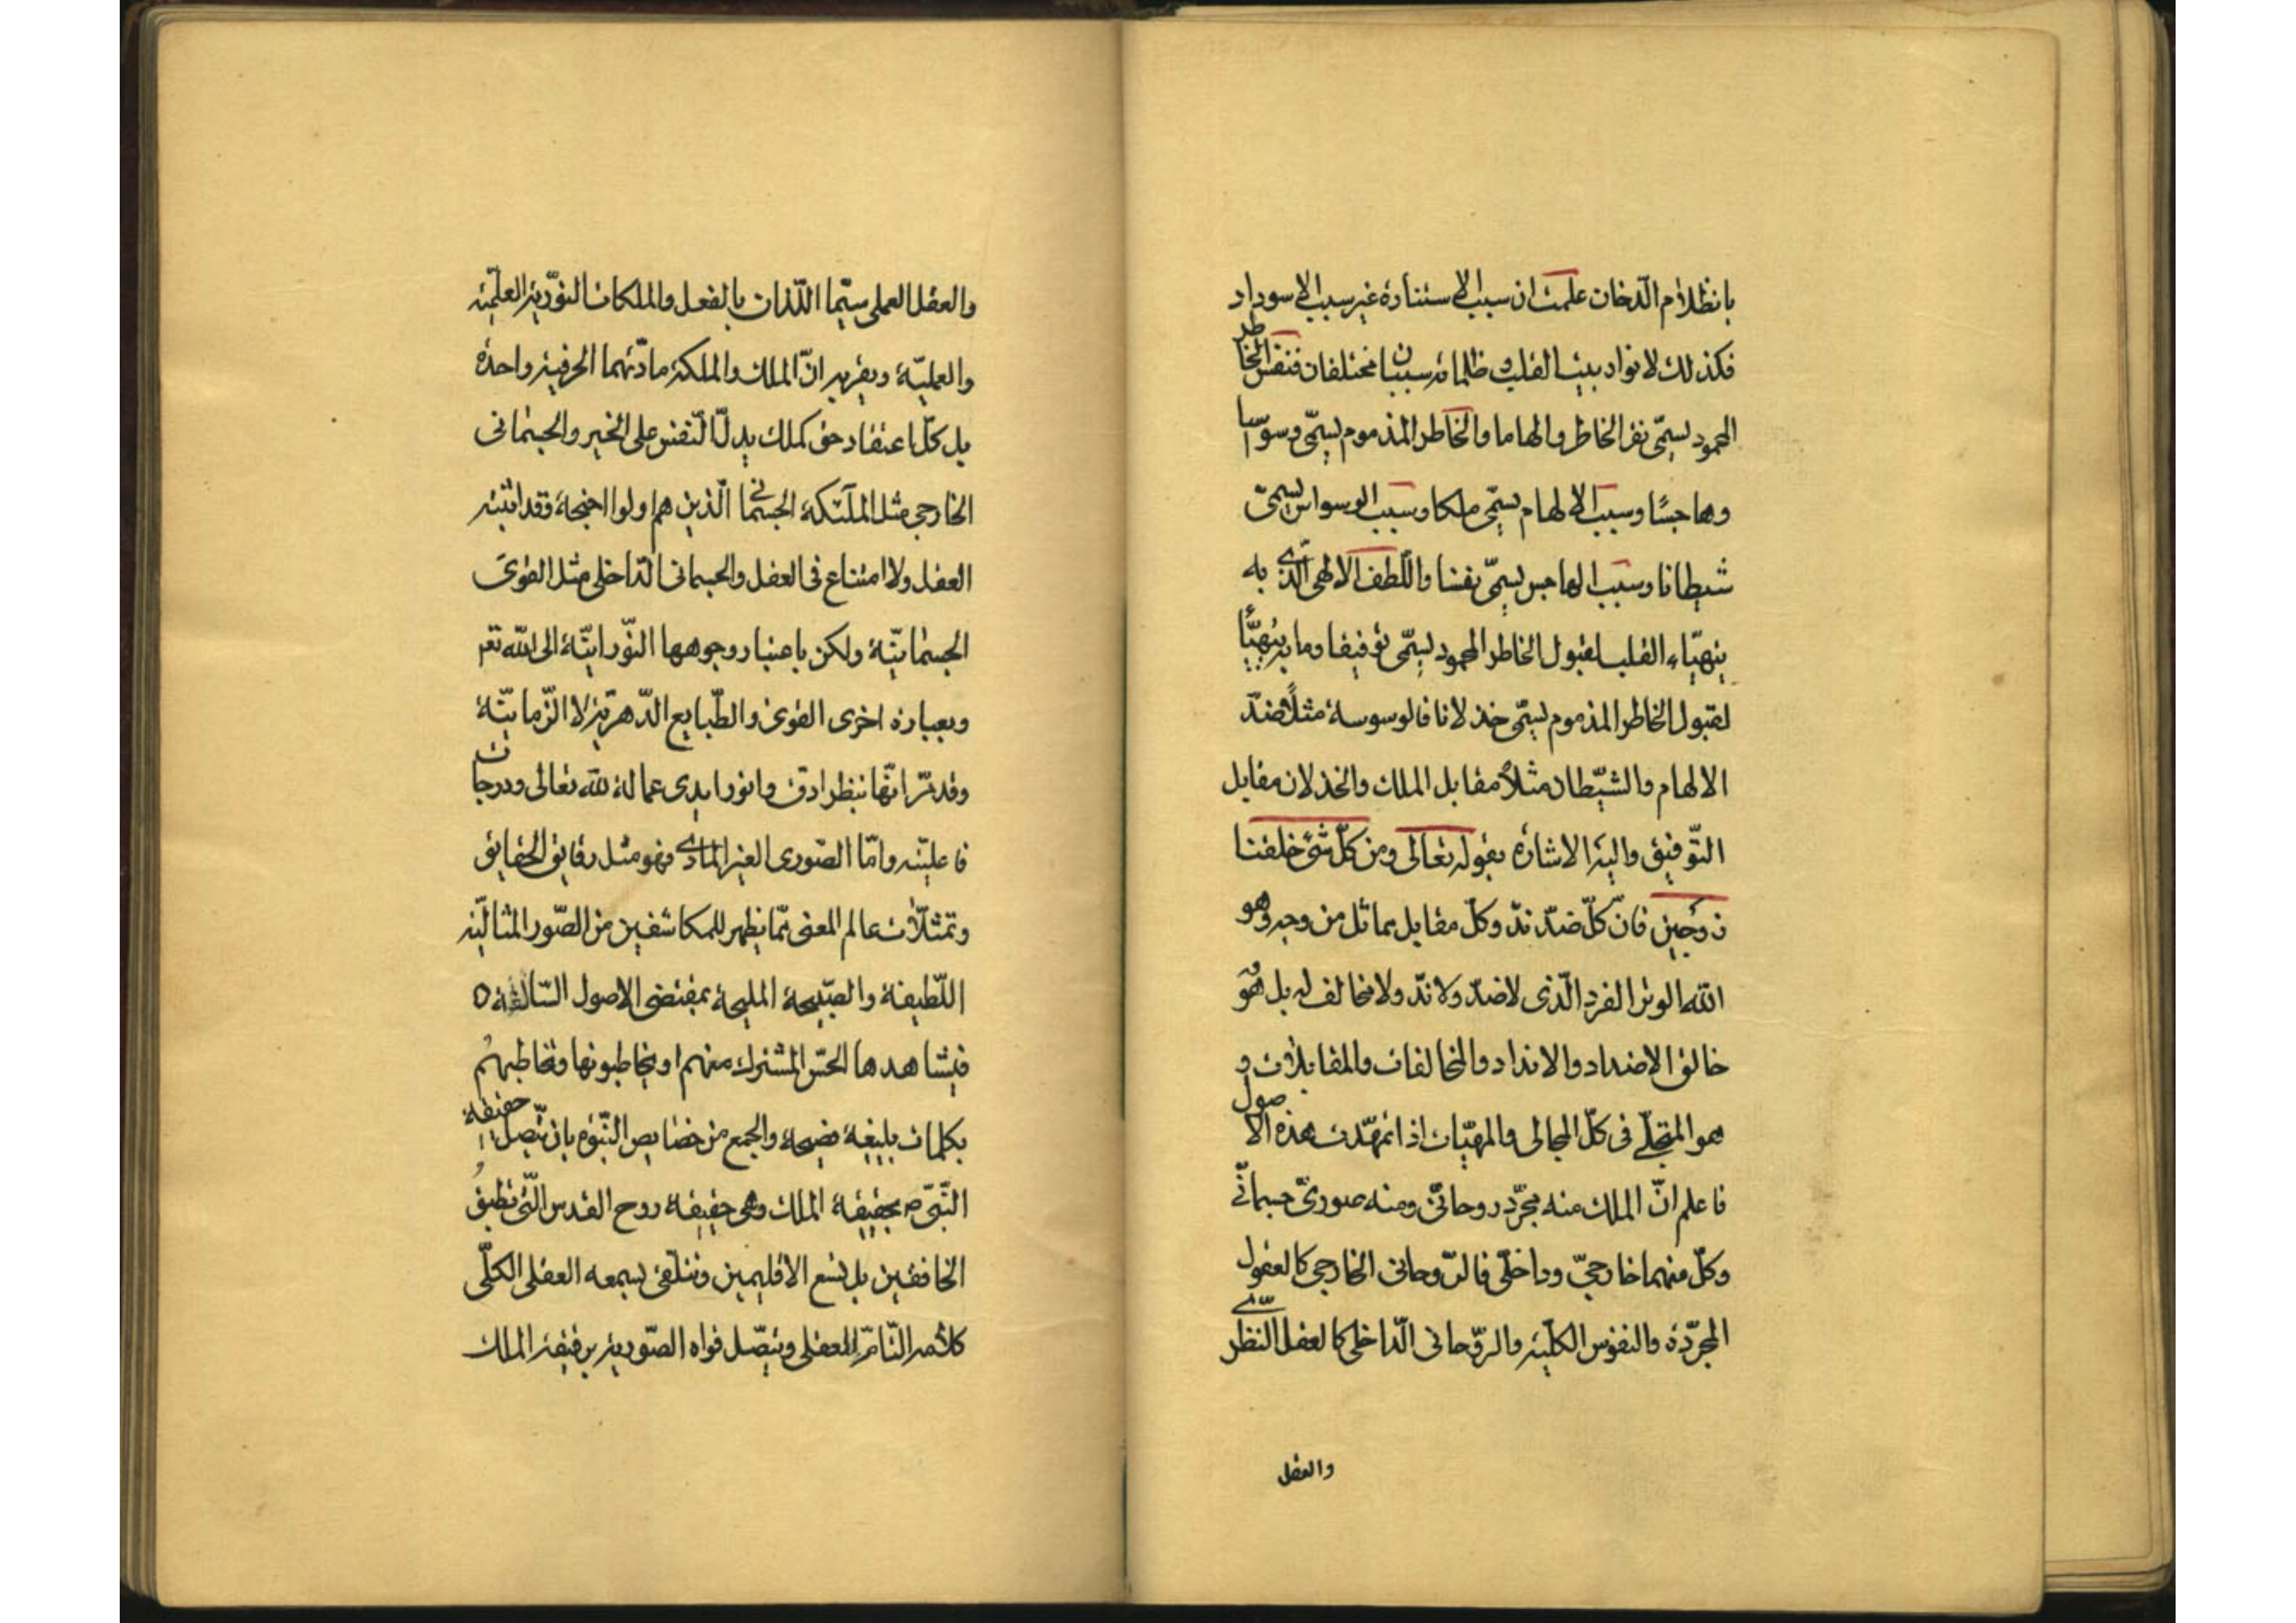 بانظلام الدّخان علمت ان سبب الاستنارة غير سبب الاسوداد
فكذلك لانوار بيت القلب و ظلماته سببان مختلفان فنقش الخاطر
المحمود يسمّى نقر الخاطر والهاما والخاطر المذموم يسمّى وسواسا
وهاجسًا وسبب الالهام يسمّى ملكا وسبب الوسواس يسمّى
شيطانا وسبب الهاجس يسمّى نفسا واللّطف الالهى الّذى به
يتهيّاء القلب لقبول الخاطر المحمود يسمّى توفيقا وما به يتهيّأ
لقبول الخاطر المذموم يسمّى خذلانا فالوسوسة مثلًا ضدّ
الالهام والشيّطان مثلًا مقابل الملك والخذلان مقابل
التّوفيق واليه الاشارة بقوله تعالى ومن كلّ شئ خلقنا
زوجين فانّ كلّ ضدّ ندّ وكلّ مقابل مماثل من وجه وهو
الله الوتر الفرد الّذى لا ضدّ ولا ندّ ولا مخالف له بل هو
خالق الاضداد والانداد والمخالفات والمقابلات و
هو المتجلّى فى كلّ المجالى والمهيّات اذا تمهّدت هذه الاصول
فاعلم انّ الملك منه مجرّد روحانىّ ومنه صورىّ جسمانىّ
وكلّ منهما خارجىّ وداخلىّ فالرّوحانى الخارجى كالعقول
المجرّدة والنفوس الكلّية والرّوحانى الدّاخلى كالعقل النظرىّ
والعقل
والعقل العملى سيّما اللّذان بالفعل والملكات النوّرية العلميّة
والعمليّة وبقربه انّ الملك والملكة مادّتهما الحرفية واحدة
بل كلّ اعتقاد حق كملك يدلّ النّفس على الخير والجسمانى
الخارجى مثل الملٓئكة الجسمانى الّذين هم اولوا اجنحة فقد اثبته
العقل ولا امتناع فى العقل والجسمانى الدّاخلى مثل القوى
الجسمانيّة ولكن باعتبار وجوهها النّورانيّة الى الله تعم
وبعبارة اخرى القوى والطّبايع الدّهريّة لا الزّمانيّة
وقد مرّ انّها بنظر ادق وانور ايدى عمالة لله تعالى ودرجات
فاعليّته وامّا الصّورى الغير المادى فهو مثل رقايق الحقايق
وتمثلّات عالم المعنى ممّا يظهر للمكاشفين من الصّور المثاليّة
اللّطيفة والصّبيحة المليحة بمقتضى الاصول السّالفة ٥
فيشاهدها الحسّ المشترك منهم او يخاطبونها وتخاطبهم
بكلمات بليغة فصيحة والجمع من خصايص النّبوّة بان يتّصل حقيقة
النّبىّ ص بحقيقة الملك وهى حقيقة روح القدس الّتى تطبق
الخافقين بل تسع الاقليمين وتتلقّى بسمعه العقلى الكلّى
كلامه التّامّ العقلى ويتّصل قواه الصّورية برقيقة الملك